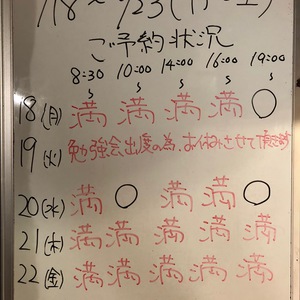 /18〜9/23(月〜土)
ご予約状況
8:30〜 10:00〜 14:00〜 16:00〜 19:00〜
18(月) 満 満 満 満 ○
19(火) 勉強会出席の為、お休みさせて頂きます
20(水) 満 ○ 満 満 ○
21(木) 満 満 満 満 満
22(金) 満 満 満 満 満